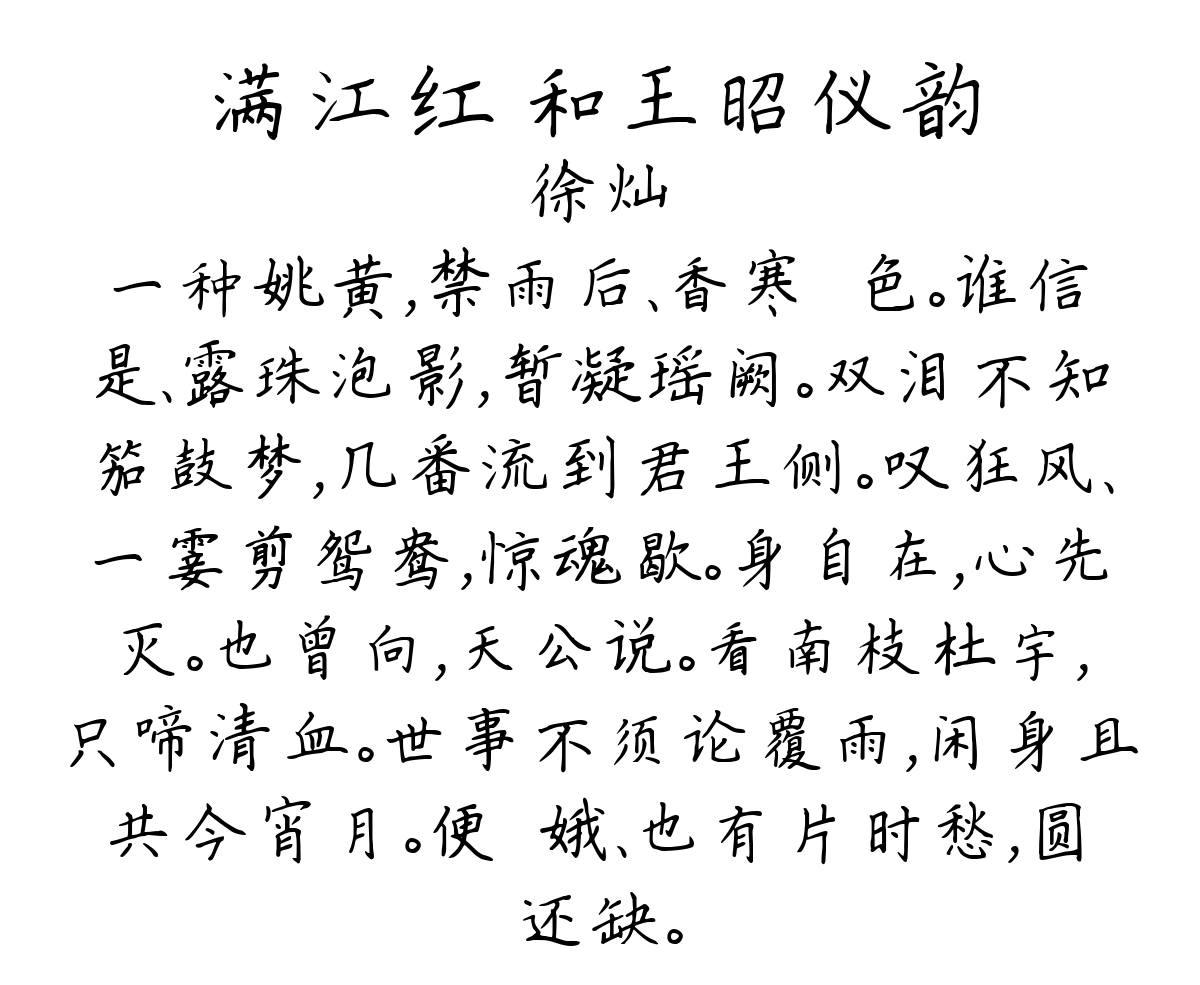 满江红 和王昭仪韵
徐灿
一种姚黄,禁雨后、香寒 色。谁信
是、露珠泡影,暂凝瑶阙。双泪不知
笳鼓梦,几番流到君王侧。叹狂风、
一霎剪鸳鸯,惊魂歇。身自在,心先
灭。也曾向,天公说。看南枝杜宇,
只啼清血。世事不须论覆雨,闲身且
共今宵月。便 娥、也有片时愁,圆
还缺。